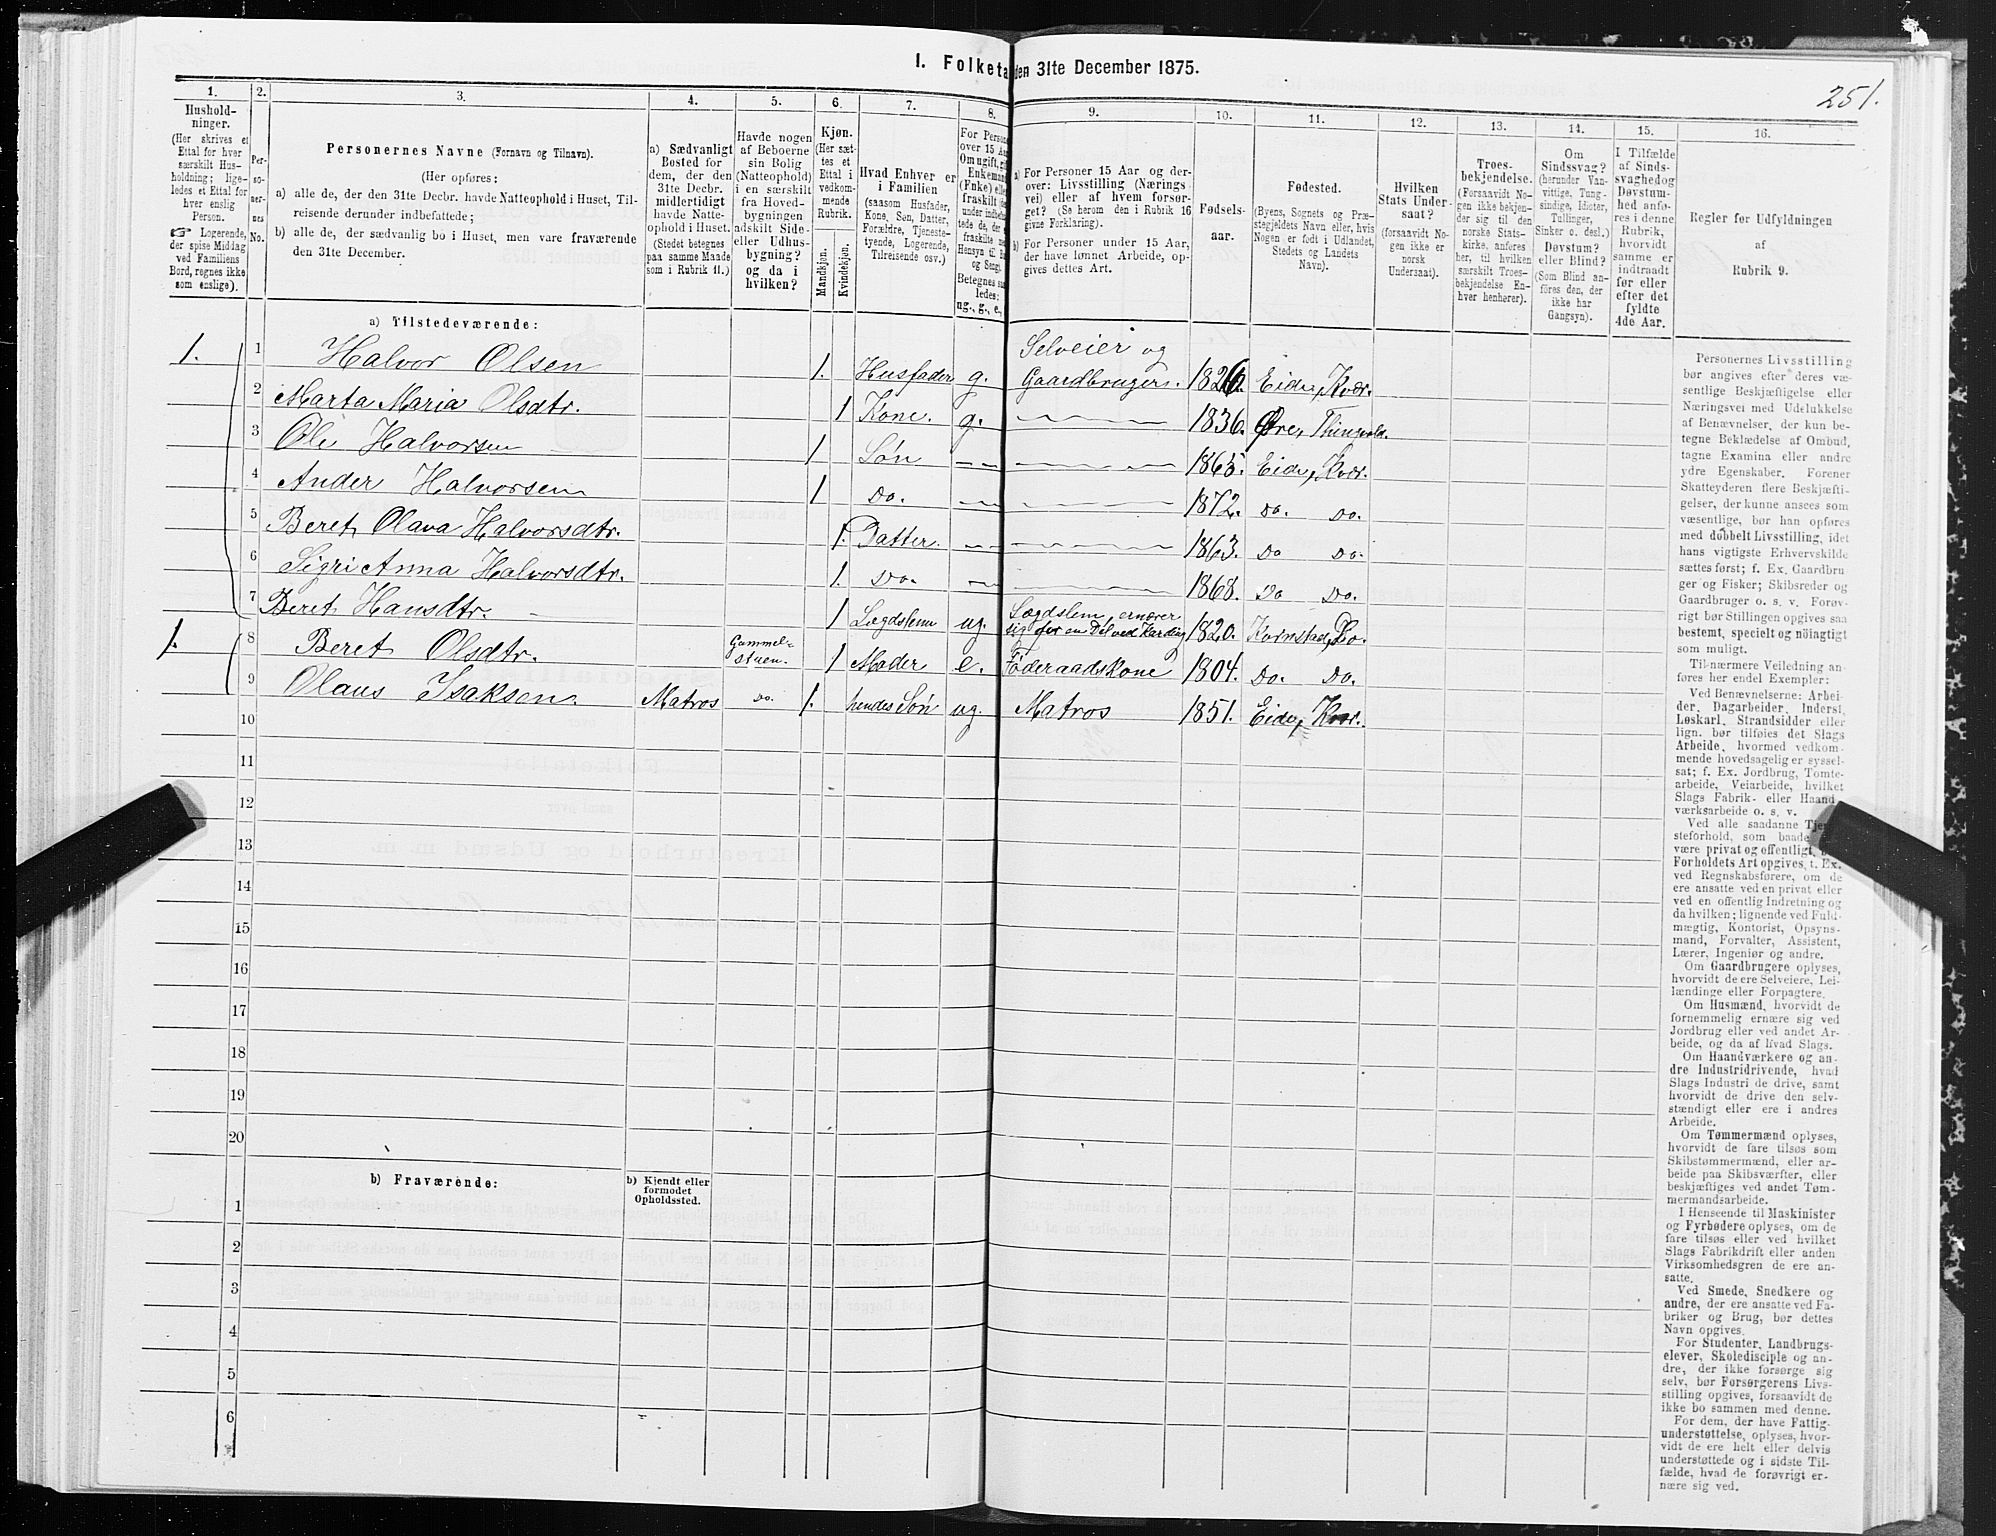 251.
I. Folketal den 31te December 1875.
1. 2. 3. 4. 5. 6. 7. 8. 9. 10. 11. 12. 13. 14. 15. 16.
Hushold-
ninger.
(Her skrives et
Ettal for hver
særskilt Hus-
holdning; lige-
ledes et Ettal for
hver enslig
Person.
☞ Logerende,
der spise Middag
ved Familiens
Bord, regnes ikke
som enslige).
Per-
so-
ner-
nes
No.
Personernes Navne (Fornavn og Tilnavn).
(Her opføres:
a) alle de, der den 31te Decbr. havde Natteophold i Huset, Til-
reisende derunder indbefattede;
b) alle de, der sædvanlig bo i Huset, men vare fraværende
den 31te December.
a) Sædvanligt
Bosted for
dem, der den
31te Decbr.
midlertidigt
havde Natte-
ophold i Huset.
(Stedet betegnes
paa samme Maade
som i Rubrik 11.)
Havde nogen
af Beboerne
sin Bolig
(Natteophold)
i en særskilt
fra Hoved-
bygningen
adskilt Side-
eller Udhus-
bygning?
og da i
hvilken?
Kjøn.
(Her sæt-
tes et
Ettal i
vedkom-
mende
Rubrik.
Mandkjøn.
Kvindekjøn.
Hvad Enhver er
i Familien
(saasom Husfader,
Kone, Søn, Datter,
Forældre, Tjeneste-
tyende, Logerende,
Tilreisende osv.)
For Person
over 15 Aa
Om ugift, gif
Enkemand
(Enke) elle
fraskilt (de
under indbefat-
tede de, de
fraskilte me
Hensyn til Bo
og Seng).
Betegnes saa-
ledes:
ug., g., e.,
a) For Personer 15 Aar og der-
over: Livsstilling (Nærings
vei) eller af hvem forsør-
get? (Se herom den i Rubrik 16
givne Forklaring).
b) For Personer under 15 Aar,
der have lønnet Arbeide, op-
gives dettes Art.
Fødsels-
aar.
Fødested.
(Byens, Sognets og Præ-
stegjeldets Navn eller, hvis
Nogen er født i Udlandet,
Stedets og Landets
Navn).
Hvilken
Stats Under-
saat?
(forsaavidt No-
gen ikke er
norsk
Undersaat).
Troes-
bekjendelse.
(Forsaavidt No-
gen ikke bekjen-
der sig til den
norske Stats-
kirke, anføres
her, til hvilken
særskilt Troes-
bekjendelse En-
hver henhører).
Om
Sindssvag?
(herunder Van-
vittige, Tung-
sindige, Idioter,
Tullinger,
Sinker o. desl.)
Døvstum?
eller Blind?
(Som Blind an-
føres den, der
ikke har
Gangsyn).
I Tilfælde
af Sinds-
svaghedog
Døvstum-
hed anfø-
res i denne
Rubrik,
hvorvidt
samme er
indtraadt
før eller
efter det
fyldte
4de Aar.
Regler for Udfyldningen
af
Rubrik 9.
a) Tilstedeværende:
1. 1 Halvor Olsen 1. Husfader g. Selveier og Gaardbruger. 1826. Eide, Kvær.
2 Marta Maria Olsdtr. 1 Kone. g. 1836. Øre, Thingvold.
3 Ole Halvorsen 1 Søn 1865. Eide, Kvær.
4 Ander Halvorsen 1 Do. 1872. Do. Do.
5 Beret Olava Halvorsdtr. 1. Datter. 1863. Do Do.
6 Sigri Anna Halvorsdtr. 1. Do. 1868. Do Do.
7 Beret Hansdtr. 1 Lægdslem ug. Lægdslem, ernærer sig for en Del ved Karding 1820. Kornstad, Do.
1. 8 Beret Olsdtr. Gammel-stuen. 1 Moder e. Føderaadskone 1804. Do. Do.
9 Olaus Isaksen. Matros Do. 1. hendes Søn ug. Matros 1851. Eide, Kvær.
10
11
12
13
14
15
16
17
18
19
20
b) Fraværende:
b) Kjendt eller
formodet
Opholdssted.
1
2
3
4
5
6
Personernes Livsstilling
bør angives efter deres væ-
sentlige Beskjæftigelse eller
Næringsvei med Udelukkelse
af Benævnelser, der kun be-
tegne Beklædelse af Ombud,
tagne Examina eller andre
ydre Egenskaber. Forener
Skatteyderen flere Beskjæfti-
gelser, der kunne ansees som
væsentlige, bør han opføres
med dobbelt Livsstilling, idet
hans vigtigste Erhvervskilde
sættes først; f. Ex. Gaardbru-
ger og Fisker; Skibsreder og
Gaardbruger o. s. v. Forøv-
rigt bør Stillingen opgives saa
bestemt, specielt og nøiagtigt
som muligt.
Til nærmere Veiledning an-
føres her endel Exempler:
Ved Benævnelserne: Arbei-
der, Dagarbeider, Inderst,
Løskarl, Strandsidder eller
lign. bør tilføies det Slags
Arbeide, hvormed vedkom-
mende hovedsagelig er syssel-
sat; f. Ex. Jordbrug, Tomte-
arbeide, Veiarbeide, hvilket
Slags Fabrik- eller Haand-
værksarbeide o. s. v.
Ved alle saadanne Tjene-
steforhold, som baade
være privat og offentligt,
Forholdets Art opgives, t. Ex.
ved Regnskabsførere, om de
ere ansatte ved en privat eller
ved en offentlig Indretning og
da hvilken; lignende ved Fuld-
mægtig, Kontorist, Opsyns-
mand, Forvalter, Assistent,
Lærer, Ingeniør og andre.
Om Gaardbrugere oplyses,
hvorvidt de ere Selveiere, Lei-
lændinge eller Forpagtere.
Om Husmænd, hvorvidt de
fornemmelig ernære sig ved
Jordbrug eller ved andet Ar-
beide, og da af hvad Slags.
Om Haandværkere og an-
dre Industridrivende, hvad
Slags Industri de drive, samt
hvorvidt de drive den selv-
stændigt eller ere i andres
Arbeide.
Om Tømmermænd oplyses,
hvorvidt de fare tilsøs som
Skibstømmermænd, eller ar-
beide paa Skibsværfter, eller
beskjæftiges ved andet Tøm-
mermandsarbeide.
I Henseende til Maskinister
og Fyrbødere oplyses, om de
fare tilsøs eller ved hvilket
Slags Fabrikdrift eller anden
Virksomhedsgren de ere an-
satte.
Ved Smede, Snedkere og
andre, der ere ansatte ved Fa-
briker og Brug, bør dettes
Navn opgives.
For Studenter, Landbrugs-
elever, Skoledisciple og an-
dre, der ikke forsørge sig
selv, bør Forsørgerens Livs-
stilling opgives, forsaavidt de
ikke bo sammen med denne.
For dem, der have Fattig-
understøttelse, oplyses, hvor-
vidt de ere helt eller delvis
understøttede og i sidste Til-
fælde, hvad de forøvrigt er-
nære sig ved.